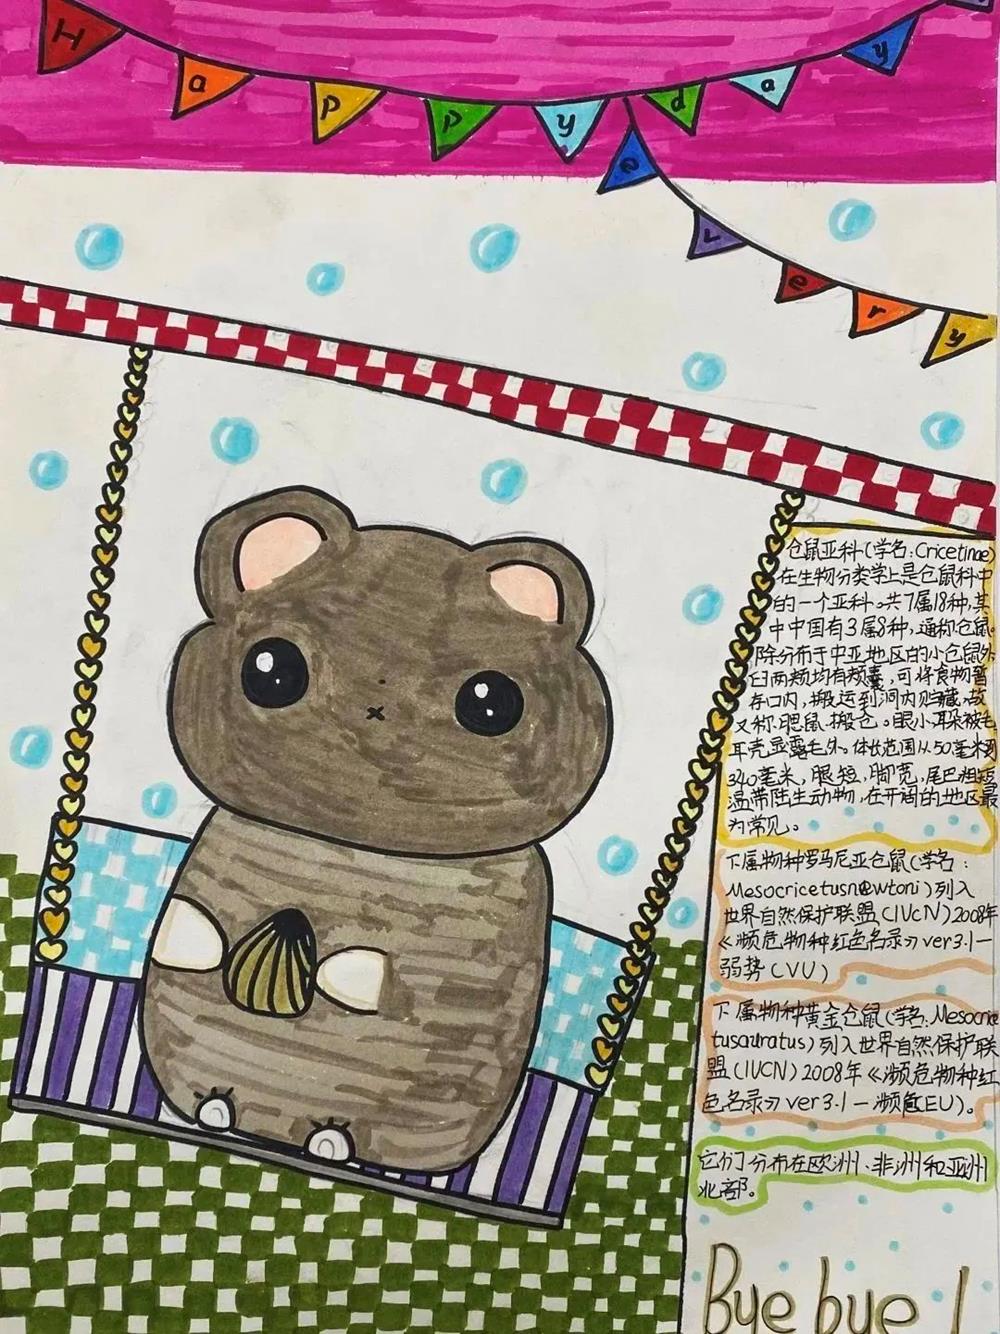 Happy day
every
仓鼠亚科(学名:Cricetinae)
在生物分类学上是仓鼠科中
的一个亚科。共7属18种,其
中中国有3属8种,通称仓鼠。
除分布于中亚地区的小仓鼠外
臼两颊均有颊囊,可将食物暂
存口内,搬运到洞内贮藏,故
又称腮鼠、搬仓。眼小耳朵被毛
耳壳显露毛外。体长范围从50毫米到
340毫米,眼短,脚宽,尾巴粗短
温带陆生动物,在开阔的地区最
为常见。
下属物种罗马尼亚仓鼠(学名:
Mesocricetusnewtoni)列入
世界自然保护联盟(IUCN)2008年
《濒危物种红色名录》ver3.1一
弱势(VU)
下属物种黄金仓鼠(学名:Mesocrice
tusauratus)列入世界自然保护联
盟(IUCN)2008年《濒危物种红
色名录》ver3.1一濒危(EU)。
它们分布在欧洲、非洲和亚洲
北部。
Bye bye !